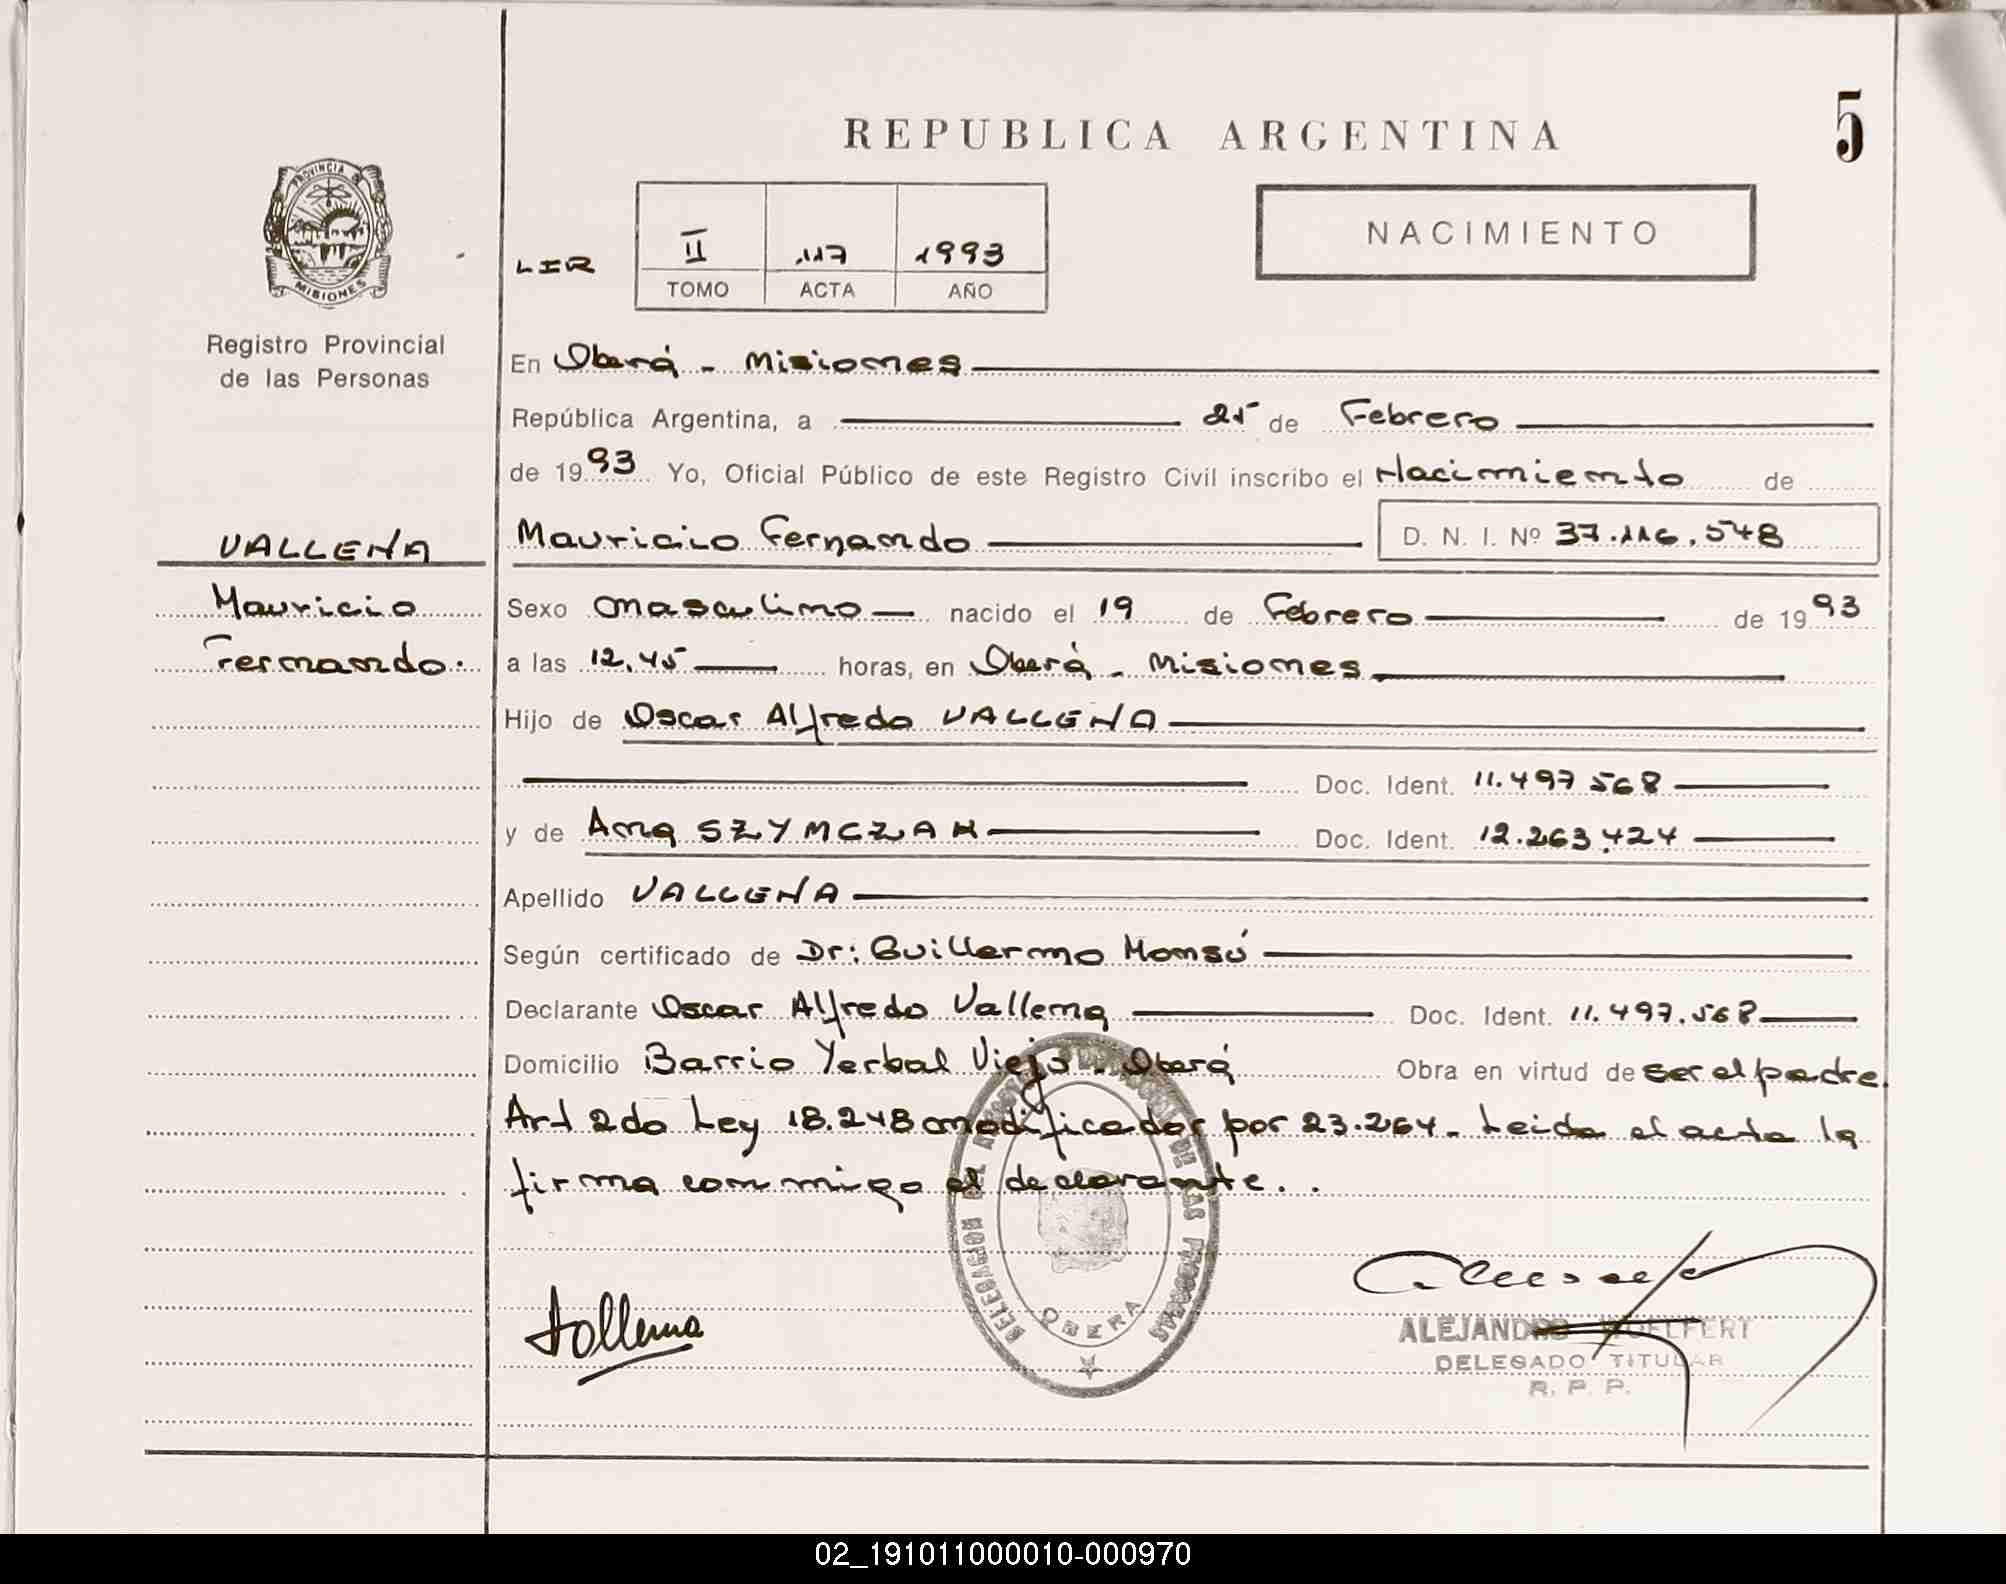 REPUBLICA ARGENTINA
5
PROVINCIA DE
MISIONES
Registro Provincial
de las Personas
LIR
II 117 1993
TOMO ACTA AÑO
NACIMIENTO
En Oberá - Misiones
República Argentina, a 25 de Febrero
de 1993 Yo, Oficial Público de este Registro Civil inscribo el Nacimiento de
VALLENA
Mauricio
Fernando.
Mauricio Fernando D. N. I. Nº 37.116.548
Sexo masculino nacido el 19 de Febrero de 1993
a las 12,45 horas, en Oberá - Misiones
Hijo de Oscar Alfredo VALLENA
Doc. Ident. 11.497.568
y de Ana SZYMCZAK Doc. Ident. 12.263.424
Apellido VALLENA
Según certificado de Dr: Guillermo Monsú
Declarante Oscar Alfredo Vallena Doc. Ident. 11.497.568
Domicilio Barrio Yerbal Viejo - Oberá Obra en virtud de ser el padre
Art 2do Ley 18.248 modificador por 23.264 - Leida el acta la
firma conmigo el declarante. .
DELEGACION DEL REGISTRO PROVINCIAL DE LAS PERSONAS
OBERA
Vallena
ALEJANDRO WOELFERT
DELEGADO TITULAR
R. P. P.
02_191011000010-000970